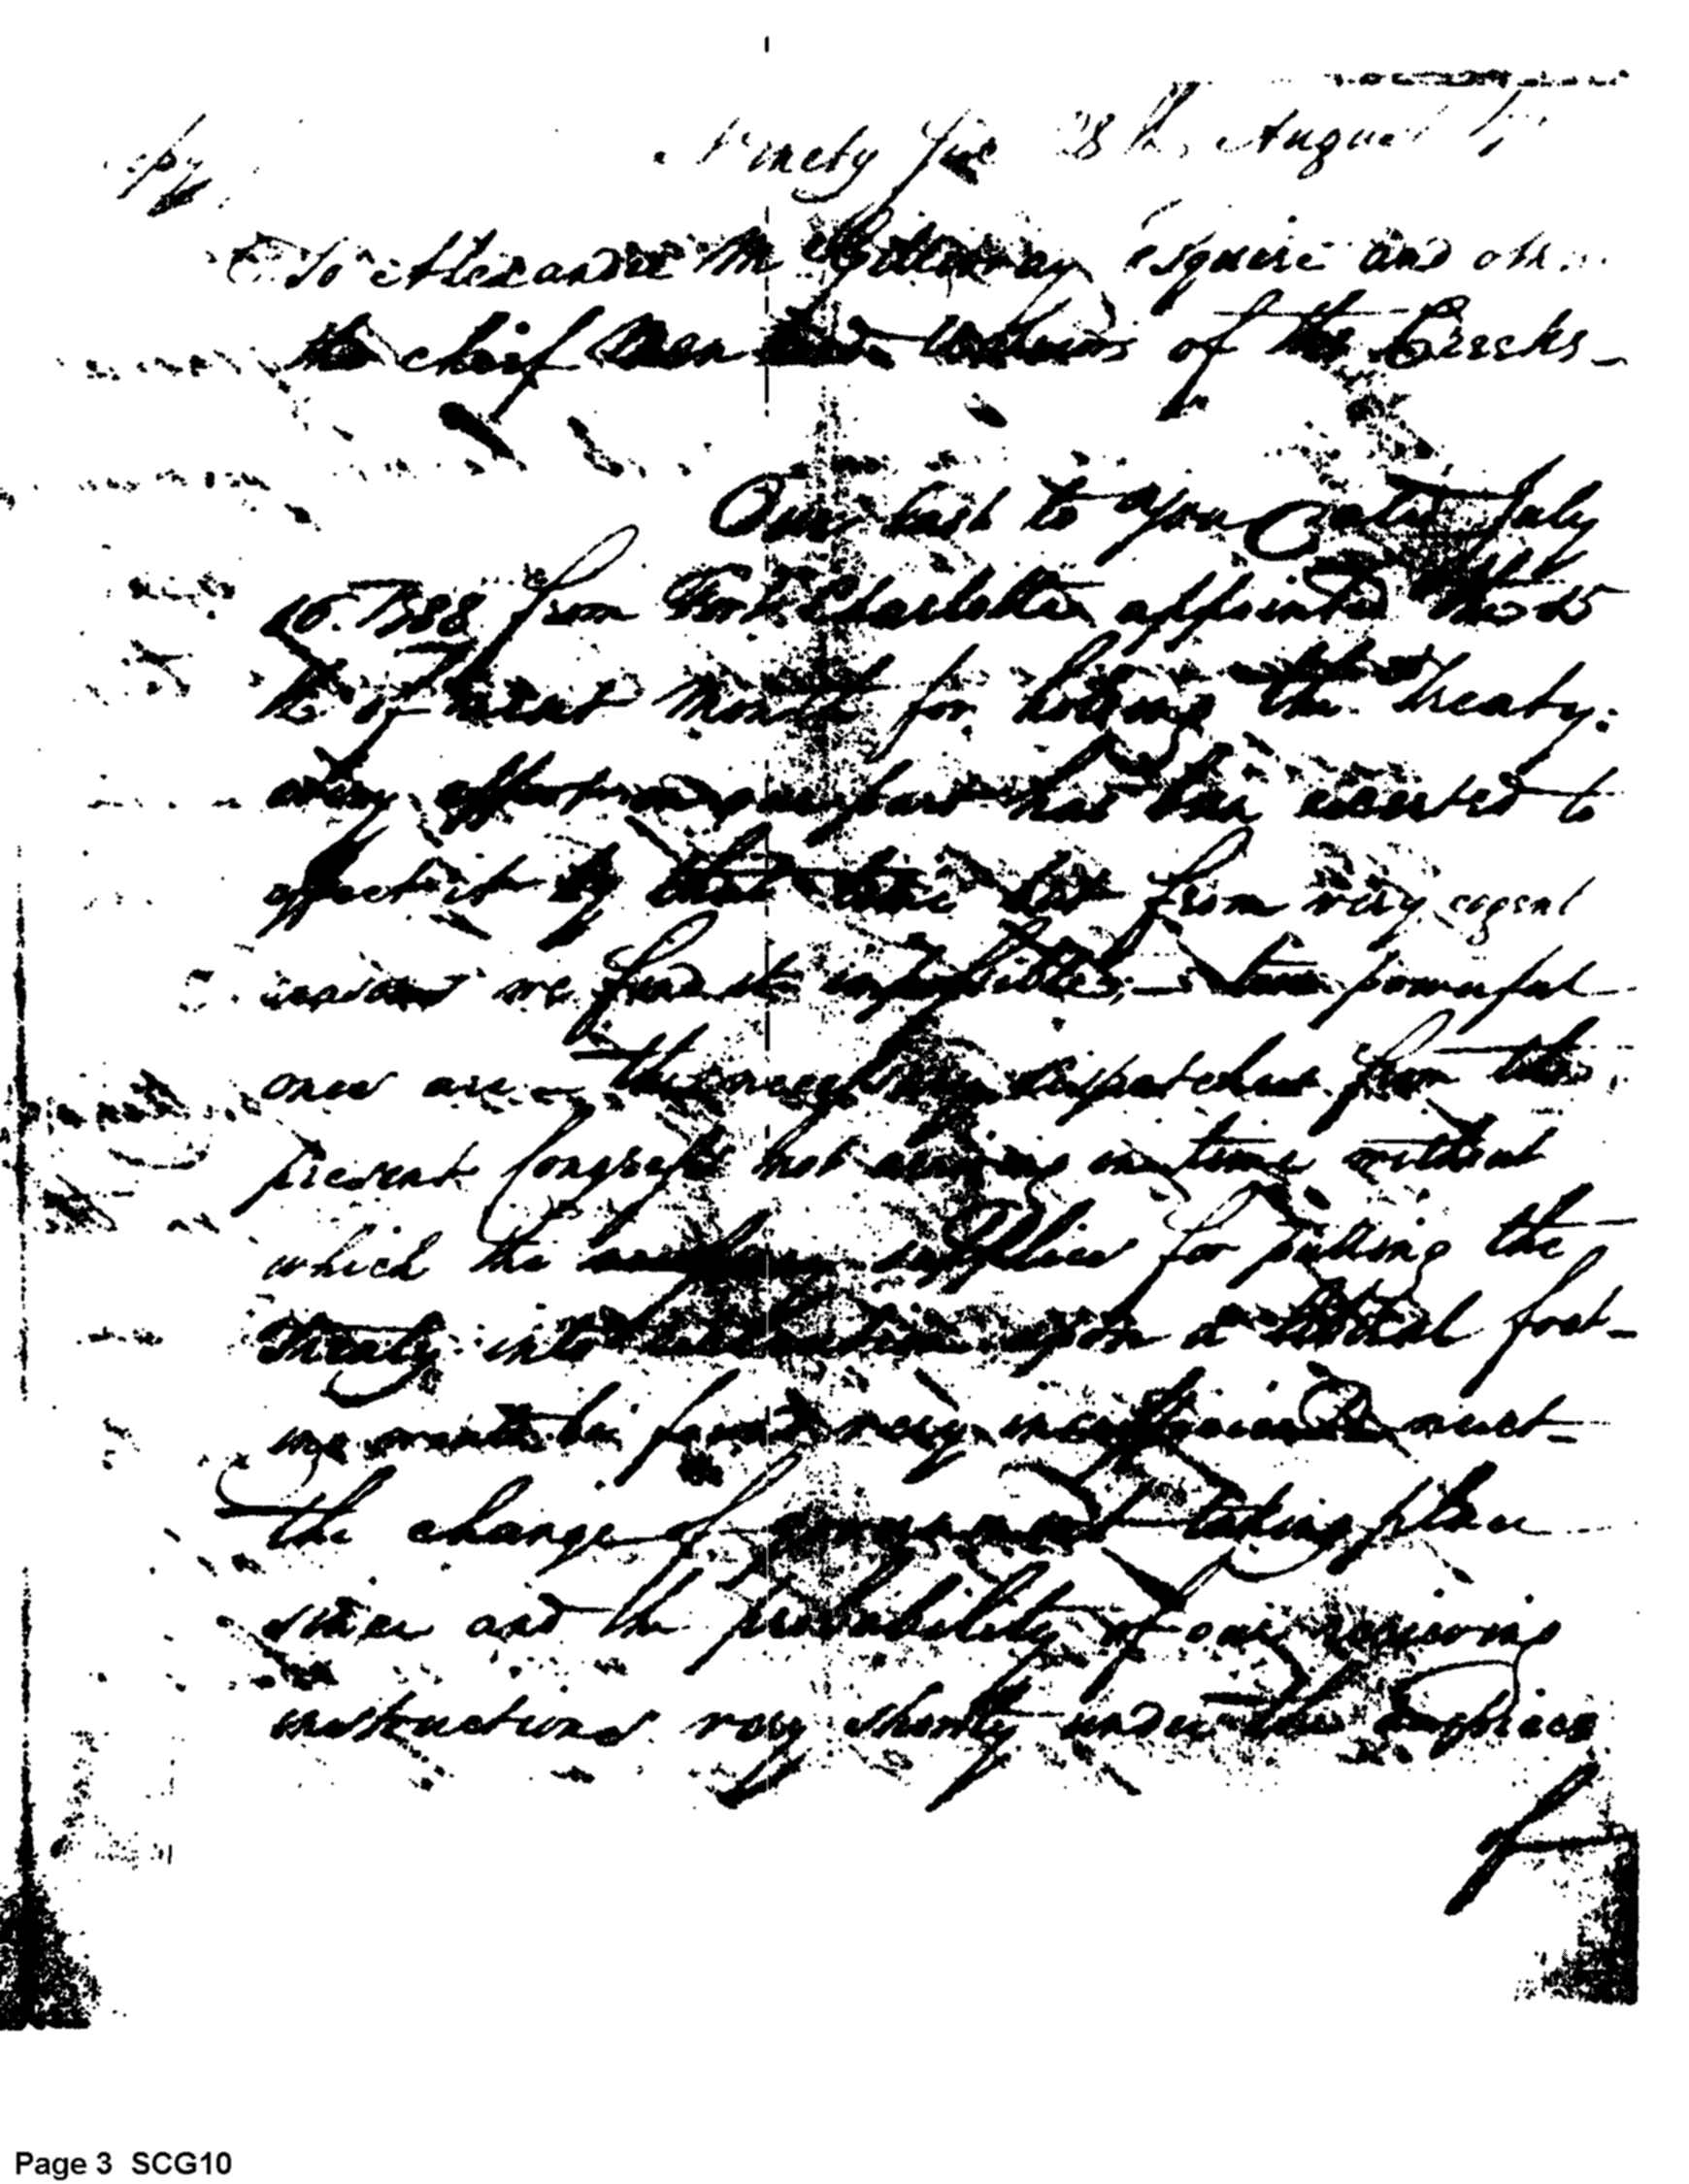 Ninety Six 28th August
To Alexander McGillivray esquire and oth
the cheif Men and Warriors of the Creeks
Our last to you Dated July
16. 1788 from Fort Charlotte, appointed the 15
th of next Month for holding the treaty.
every effort on our part has been exerted to
effect it by that time but from very cogent
reasons we find it impossible; two powerful
ones are the necessary dispatches from the
present Congress not arriving in time without
which the supplies for putting the
treaty into upon a liberal foot-
ing must be found very insufficient next
the change of government taking place
and the probability of our receiving
instructions very shortly under the auspices
of
Page 3 SCG10